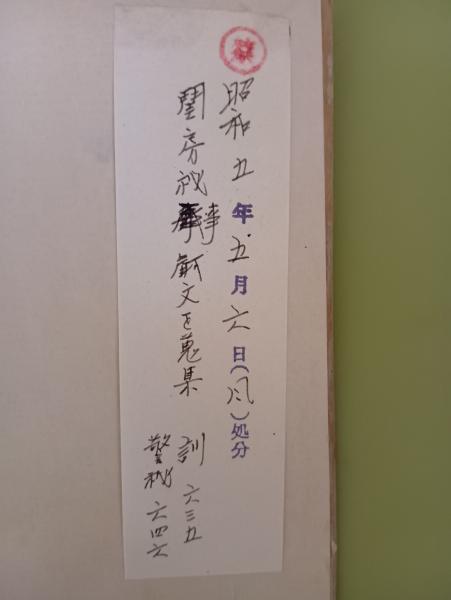 昭和五年五月六日(风)処分
閨房秘事文を蒐集
訓 六三五
警秘 六四六